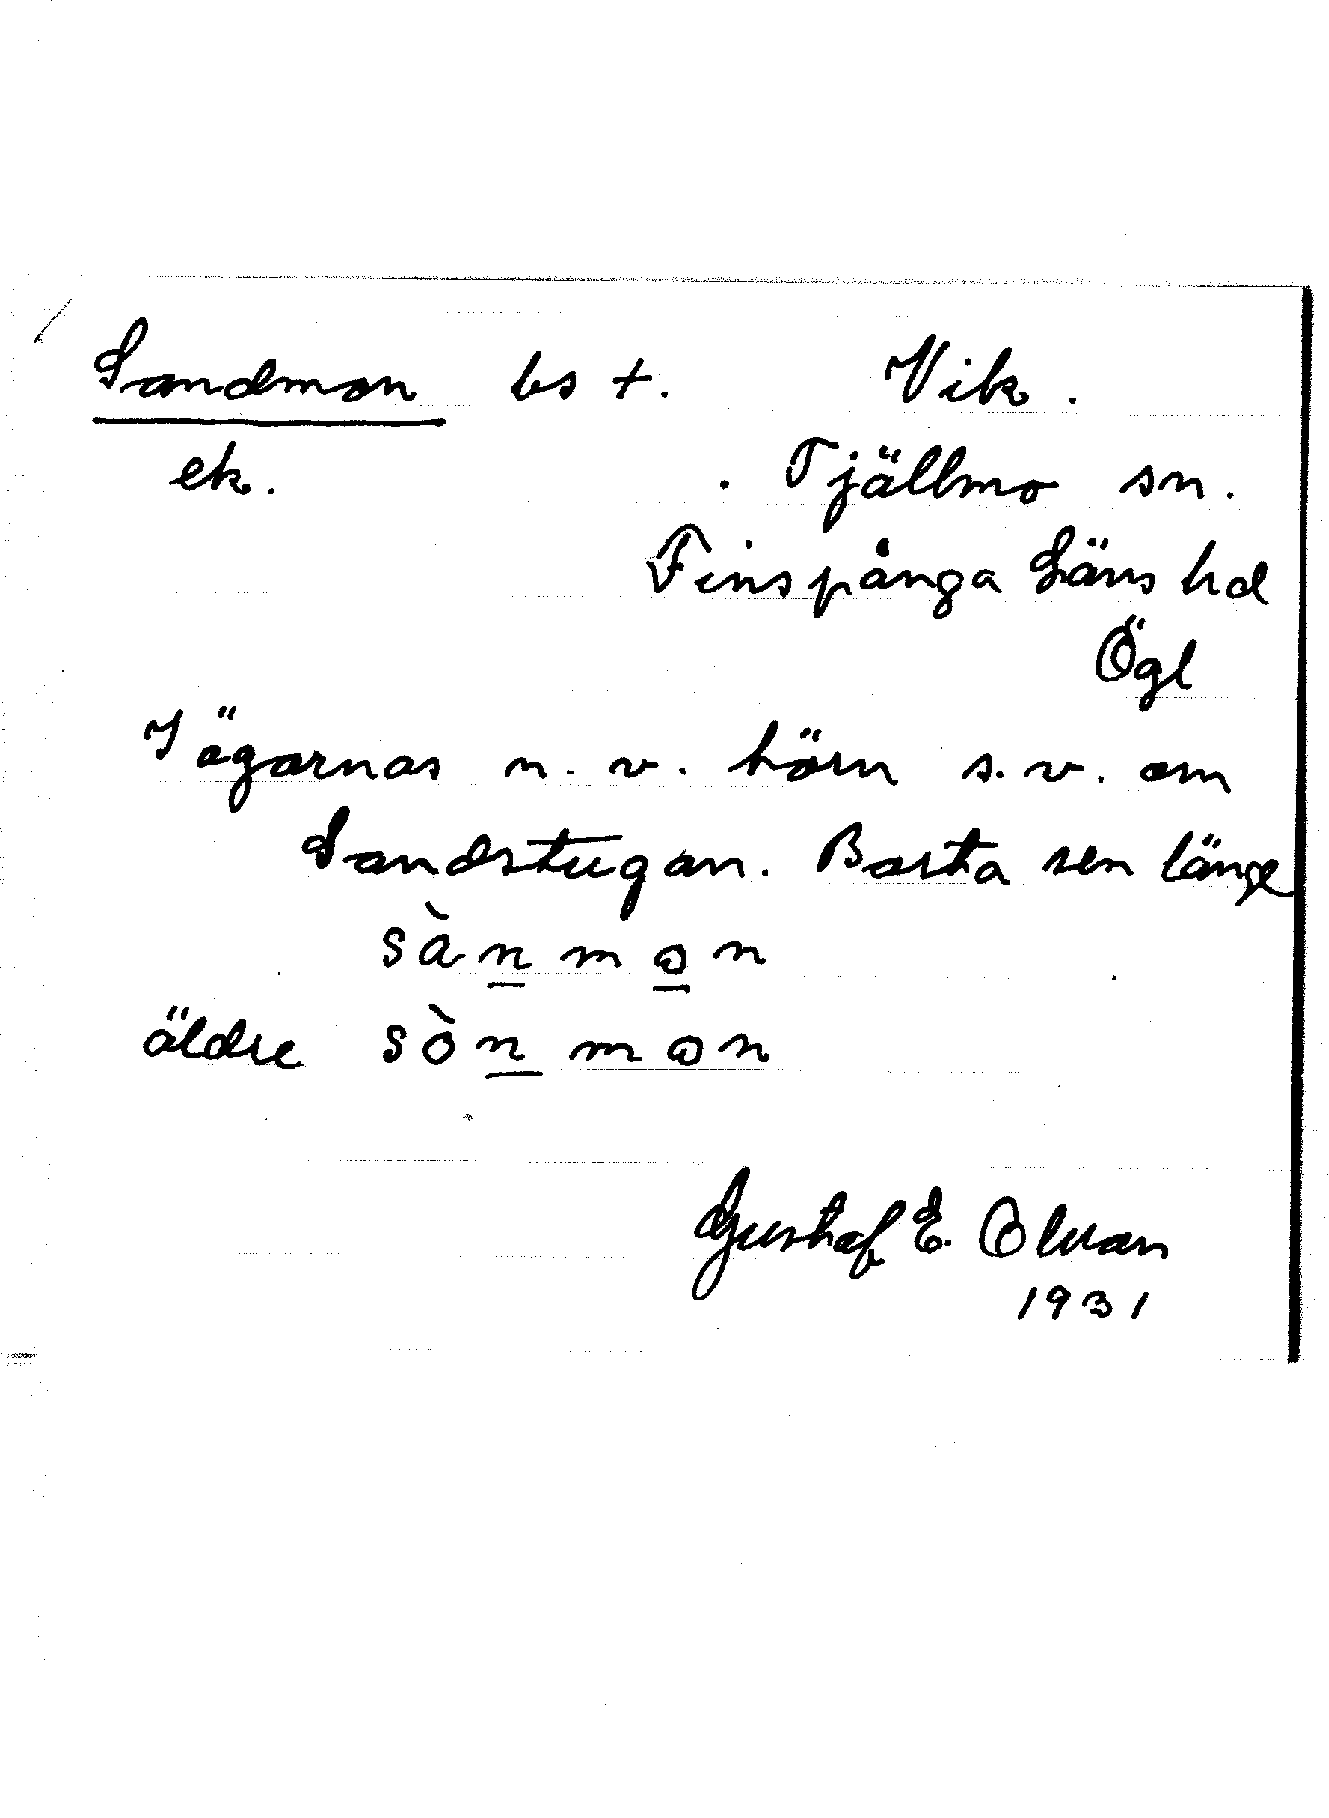 Sandmon bs +. Vik.
ek. . Tjällmo sn.
Finspånga Läns hd
Ögl
I ägornas n. v. hörn s. v. om
Sandstugan. Borta sen länge
sànmɷn
äldre sònmɷn
Gustaf E. Olsson
1931